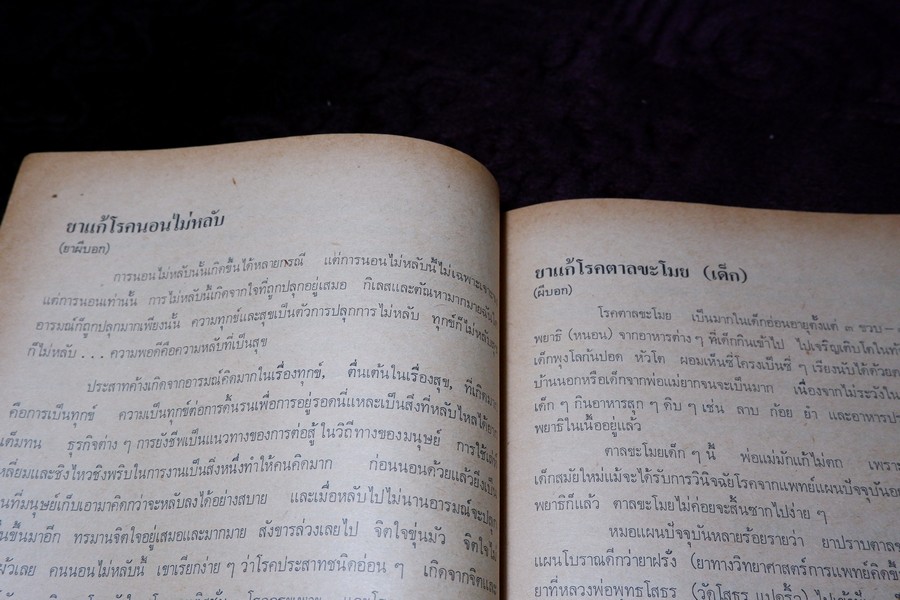 ยาแก้โรคนอนไม่หลับ
(ยาผีบอก)
การนอนไม่หลับนั้นเกิดขึ้นได้หลายกรณี แต่การนอนไม่หลับนี้ไม่เฉพาะเจาะจง
แต่การนอนเท่านั้น การไม่หลับนี้เกิดจากใจที่ถูกปลุกอยู่เสมอ กิเลสและตัณหามากมาย
อารมณ์ก็ถูกปลุกมากเพียงนั้น ความทุกข์และสุขเป็นตัวการปลุกการไม่หลับ ทุกข์ก็ไม่หลับสุข
ก็ไม่หลับ . . . ความพอดีคือความหลับที่เป็นสุข
ประสาทค้างเกิดจากอารมณ์คิดมากในเรื่องทุกข์, ตื่นเต้นในเรื่องสุข, ที่เกิด
คือการเป็นทุกข์ ความเป็นทุกข์ต่อการดิ้นรนเพื่อการอยู่รอดนี่แหละเป็นสิ่งที่หลับใหลได้ยาก
เต็มทน ธุรกิจต่าง ๆ การยังชีพเป็นแนวทางของการต่อสู้ ในวิถีทางของมนุษย์ การใช้
เหลี่ยมและชิงไหวชิงพริบในการงานเป็นสิ่งหนึ่งทำให้คนคิดมาก ก่อนนอนด้วยแล้วยิ่งเป็น
นที่มนุษย์เก็บเอามาคิดกว่าจะหลับลงได้อย่างสบาย และเมื่อหลับไปไม่นานอารมณ์จะปลุก
ขึ้นมาอีก ทรมานจิตใจอยู่เสมอและมากมาย สังขารล่วงเลยไป จิตใจขุ่นมัว จิตใจไม่
ผัวเลย คนนอนไม่หลับนี้ เขาเรียกง่าย ๆ ว่าโรคประสาทชนิดอ่อน ๆ เกิดจากจิตและ
ยาแก้โรคตาลขะโมย (เด็ก)
(ผีบอก)
โรคตาลขะโมย เป็นมากในเด็กอ่อนอายุตั้งแต่ ๓ ขวบ–
พยาธิ (หนอน) จากอาหารต่าง ๆ ที่เด็กกินเข้าไป ไปเจริญเติบโตใน
เด็กพุงโลก้นปอด หัวโต ผอมเห็นซี่โครงเป็นซี่ ๆ เรียงนับได้ด้วย
บ้านนอกหรือเด็กจากพ่อแม่ยากจนจะเป็นมาก เนื่องจากไม่ระวังใน
เด็ก ๆ กินอาหารสุก ๆ ดิบ ๆ เช่น ลาบ ก้อย ยำ และอาหาร
พยาธิในเนื้ออยู่แล้ว
ตาลขะโมยเด็ก ๆ นี้ พ่อแม่มักแก้ไม่ตก เพราะ
เด็กสมัยใหม่แม้จะได้รับการวินิจฉัยโรคจากแพทย์แผนปัจจุบัน
พยาธิก็แล้ว ตาลขะโมยไม่ค่อยจะสิ้นซากไปง่าย ๆ
หมอแผนปัจจุบันหลายร้อยรายว่า ยาปราบตาลข
แผนโบราณดีกว่ายาฝรั่ง (ยาทางวิทยาศาสตร์การแพทย์คิดขึ้
ยาที่หลวงพ่อพุทธโสธร (วัดโสธร แปดริ้ว)